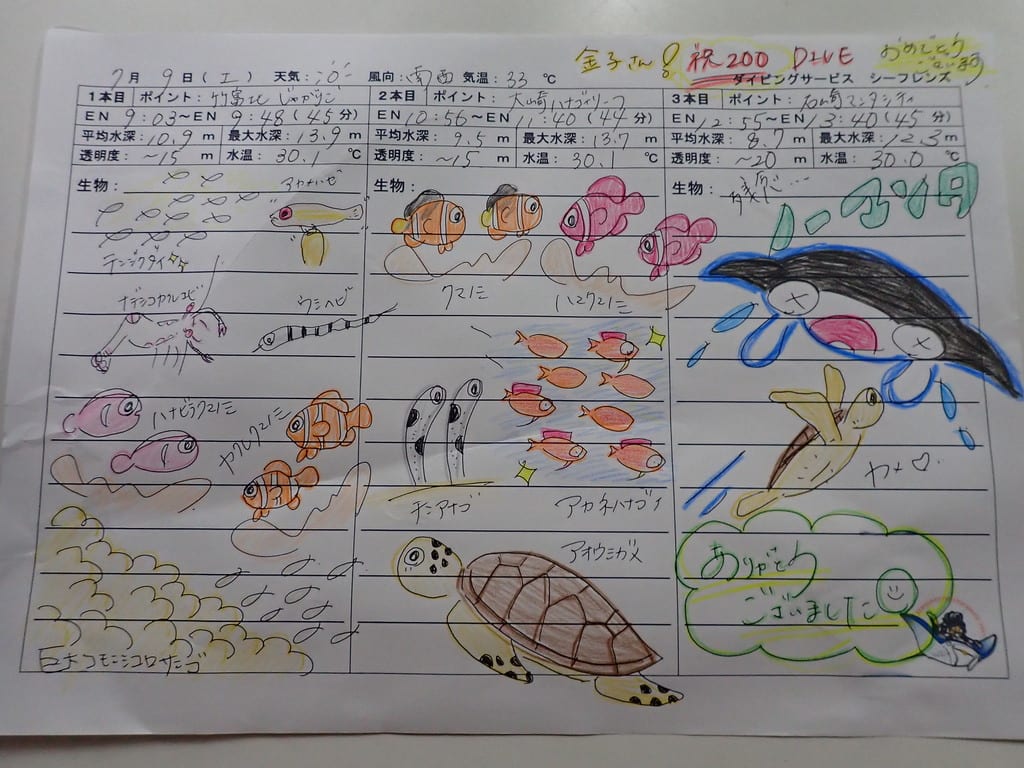 金子さん! 祝200 DIVE おめでとうございます
7月 9日(土) 天気: 風向:南西 気温:33 ℃
ダイビングサービス シーフレンズ
1本目 ポイント:竹富北 じゃがりこ
EN 9:03～EN 9:48(45分)
平均水深:10.9 m 最大水深:13.9 m
透明度:~15 m 水温:30.1 ℃
生物:
アヤメハゼ
テンジクダイ
ナデシコカクレエビ
ウミヘビ
ハナビラクマノミ
カクレクマノミ
巨大コモンシコロサンゴ
2本目 ポイント:大崎ハナゴイリーフ
EN 10:56～EN 11:40(44分)
平均水深:9.5 m 最大水深:13.7 m
透明度:~15 m 水温:30.1 ℃
生物:
クマノミ
ハマクマノミ
チンアナゴ
アカネハナゴイ
アオウミガメ
3本目 ポイント:石崎マンタシティ
EN 12:55～EN 13:40(45分)
平均水深:8.7 m 最大水深:12.3 m
透明度:~20 m 水温:30.0 ℃
生物:
残念…
ノーマンタ
カメ♡
ありがとう
ございました